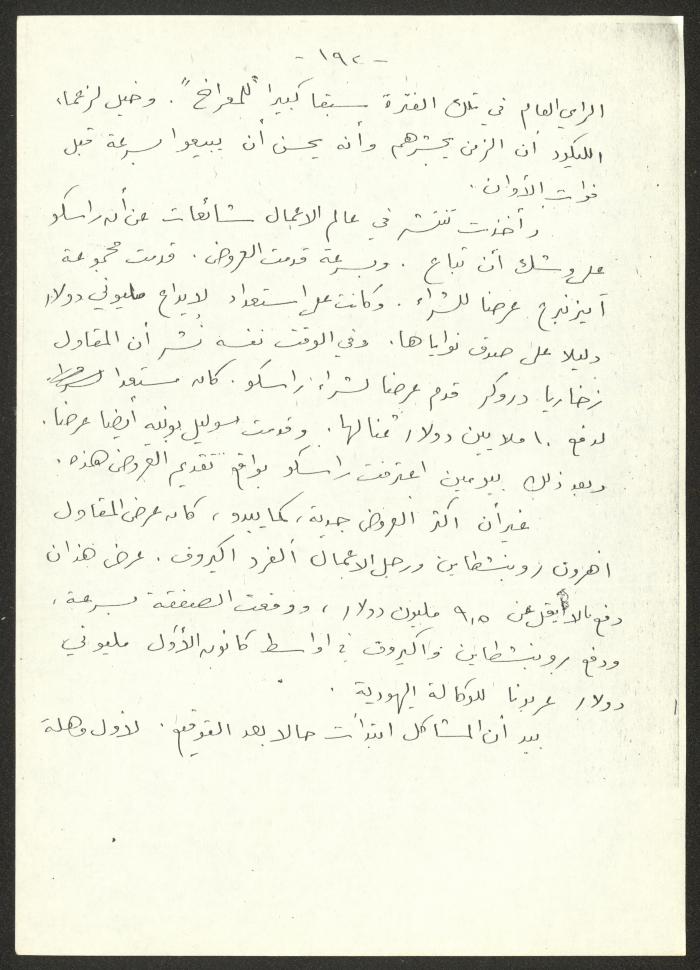 - ١٩٢ -
الرأي العام في تلك الفترة سبقا كبيرا "للمعراخ". وخيل لزعماء
الليكود أن الزمن يحشرهم وأنه يحسن أن يبيعوا بسرعة قبل
فوات الأوان.
وأخذت تنتشر في عالم الاعمال شائعات عن أن راسكو
على وشك أن تباع. وبسرعة قدمت العروض. قدمت مجموعة
آيزنبرغ عرضا للشراء. وكانت على استعداد لإيداع مليوني دولار
دليلا على صدق نواياها. وفي الوقت نفسه نُشر أن المقاول
زخاريا دروكر قدم عرضا لشراء راسكو. كان مستعدا
لدفع ١٠ ملايين دولار ثمنا لها. وقدمت سوليل بونيه أيضا عرضا.
وبعد ذلك بيومين اعترفت راسكو بواقع تقديم العروض هذه.
غير أن اكثر العروض جدية، كما يبدو، كان عرض المقاول
اهرون روبنشطاين ورجل الاعمال الفرد اكيروف. عرض هذان
دفع ما لا يقل عن ٩,٥ مليون دولار، ووقعت الصفقة بسرعة،
ودفع روبنشطاين واكيروف في اواسط كانون الأول مليوني
دولار عربونا للوكالة اليهودية.
بيد أن المشاكل ابتدأت حالا بعد التوقيع. لأول وهلة